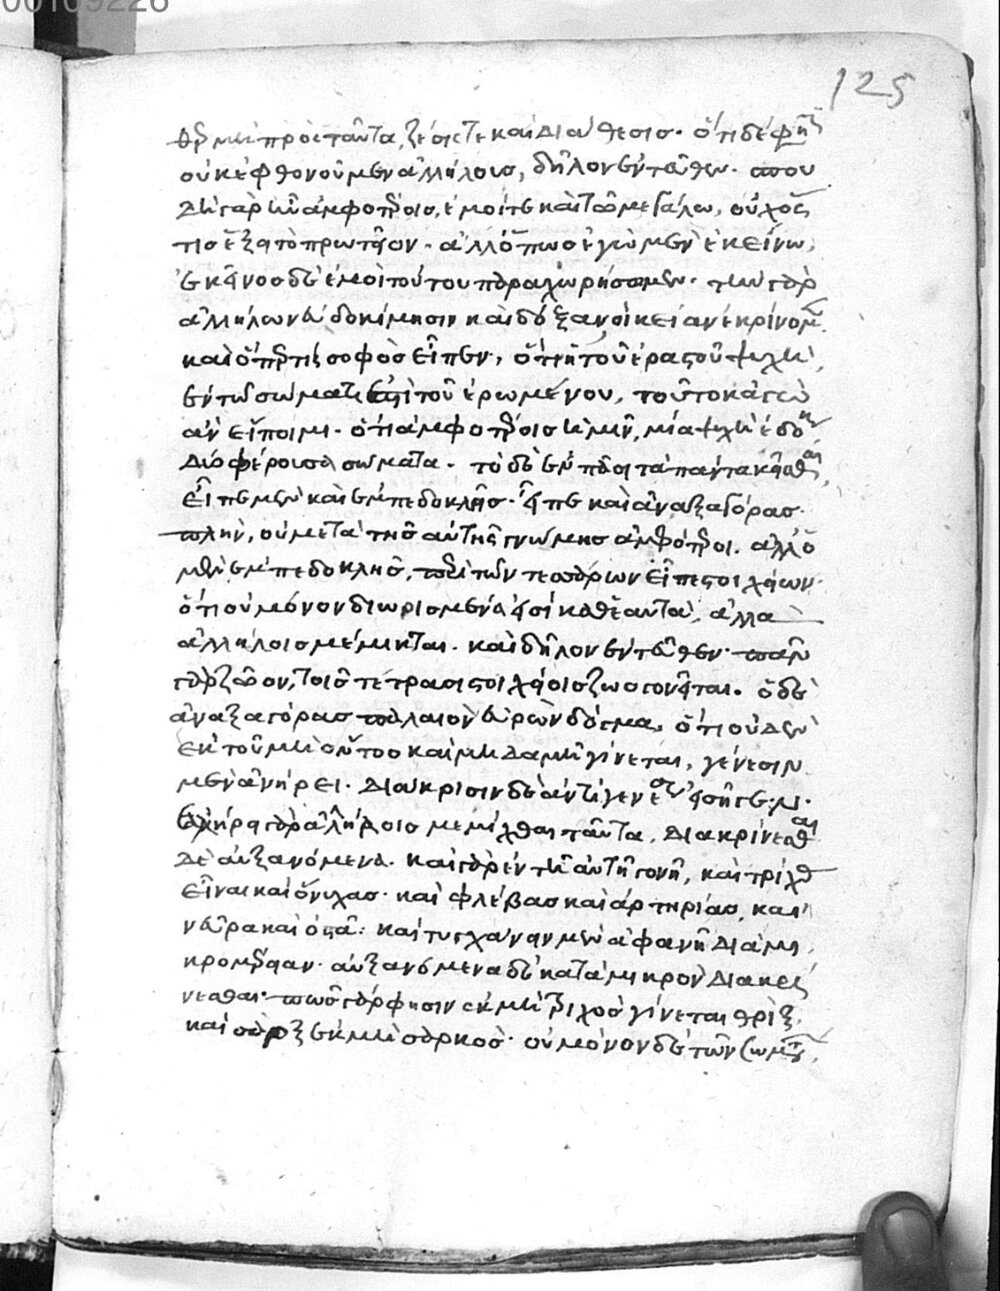 00109226
125
θερμὴ πρὸς ταῦτα, ζέσις τε καὶ διάθεσις. ὅτι δέ φης
οὐκ ἐφθονοῦμεν ἀλλήλοις, δῆλον ἐντεῦθεν.
δὴ γὰρ ἦν ἀμφοτέροις, ἐμοί τε καὶ τῷ μεγάλῳ, οὐχ ὅς
τις ἕξει τὸ πρωτεῖον. ἀλλ' ὅπως ἐγὼ μὲν ἐκείνῳ,
ἐκεῖνος δὲ ἐμοὶ τούτου παραχωρήσωμεν. τὴν γὰρ
ἀλλήλων εὐδοκίμησιν καὶ δόξαν οἰκείαν ἐκρίνομεν.
καὶ ὅπερ τις σοφὸς εἶπεν, ὅτι ἡ τοῦ ἐραστοῦ ψυχὴ,
ἐν τῷ σώματι ἐστὶ τοῦ ἐρωμένου, τοῦτο κἀγὼ
ἂν εἴποιμι. ὅτι ἀμφοτέροις ἡμῖν, μία ψυχὴ ἐδόκει
δύο φέρουσα σώματα. τὸ δὲ ἐν παντὶ τὰ πάντα κεῖσθαι,
εἶπε μὲν καὶ ἐμπεδοκλῆς. εἶπε καὶ ἀναξαγόρας.
πλὴν, οὐ μετὰ τῆς αὐτῆς γνώμης ἀμφότεροι. ἀλλ' ὁ
μὲν ἐμπεδοκλῆς, περὶ τῶν τεσσάρων εἶπε στοιχείων.
ὅτι οὐ μόνον διωρισμένα εἰσὶ καθ' ἑαυτὰ, ἀλλὰ
ἀλλήλοις μέμικται. καὶ δῆλον ἐντεῦθεν. πᾶν
γὰρ ζῶον, τοῖς τέτρασι στοιχείοις ζωογονεῖται. ὁ δὲ
ἀναξαγόρας παλαιὸν εὑρὼν δόγμα, ὅτι οὐδὲν
ἐκ τοῦ μὴ ὄντος καὶ μηδαμῆ γίνεται, γένεσιν
μὲν ἀνῄρει. διάκρισιν δὲ ἀντὶ γενέσεως εἰσῆγε.
ἐλήρει γὰρ ἀλλήλοις μεμίχθαι πάντα, διακρίνεσθαι
δὲ αὐξανόμενα. καὶ γὰρ ἐν τῇ αὐτῇ γονῇ, καὶ τρίχας
εἶναι καὶ ὄνυχας. καὶ φλέβας καὶ ἀρτηρίας, καὶ
νεῦρα καὶ ὀστᾶ. καὶ τυγχάνειν μὲν ἀφανῆ διὰ μι
κρομέρειαν. αὐξανόμενα δὲ κατὰ μικρὸν διακρί
νεσθαι. πῶς γὰρ φησὶν ἐκ μὴ τριχὸς γίνεται θρὶξ,
καὶ σὰρξ ἐκ μὴ σαρκός. οὐ μόνον δὲ τῶν σωμάτων,